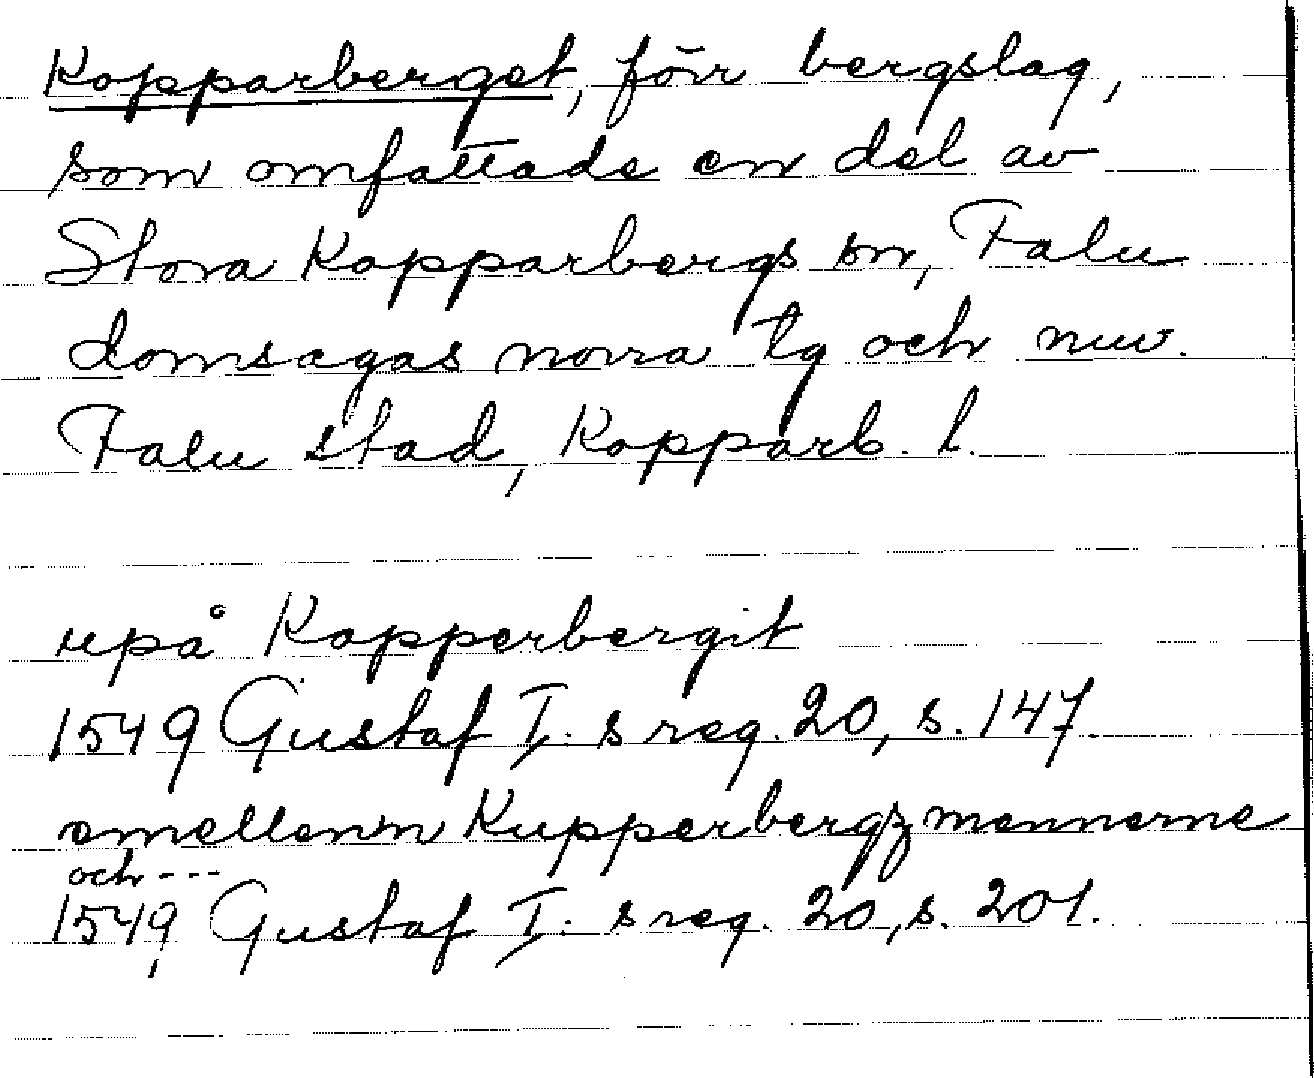 Kopparberget, förr bergslag,
som omfattade en del av
Stora Kopparbergs sn, Falu
domsagas norra tg och nuv.
Falu stad, Kopparb. l.
upå Kopperbergit
1549 Gustaf I: s reg. 20, s. 147.
emellenn Kupperbergzmennerne
och ---
1549 Gustaf I: s reg. 20, s. 201.